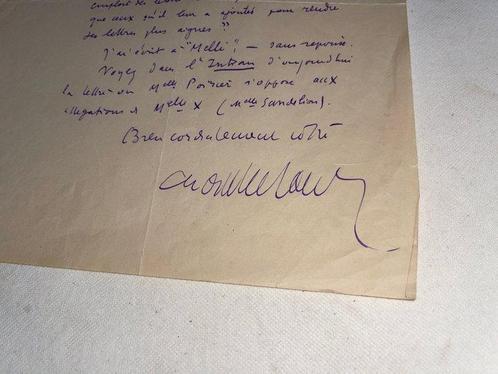 que ceux qu'il leur a ajoutés pour rendre
ses lettres plus aigres."
J'ai écrit à "Melle", — sans réponse.
Voyez dans l'Intran d'aujourd'hui
la lettre où Melle Poirier s'oppose aux
allégations de Melle X (Melle Sandelion).
Bien cordialement vôtre